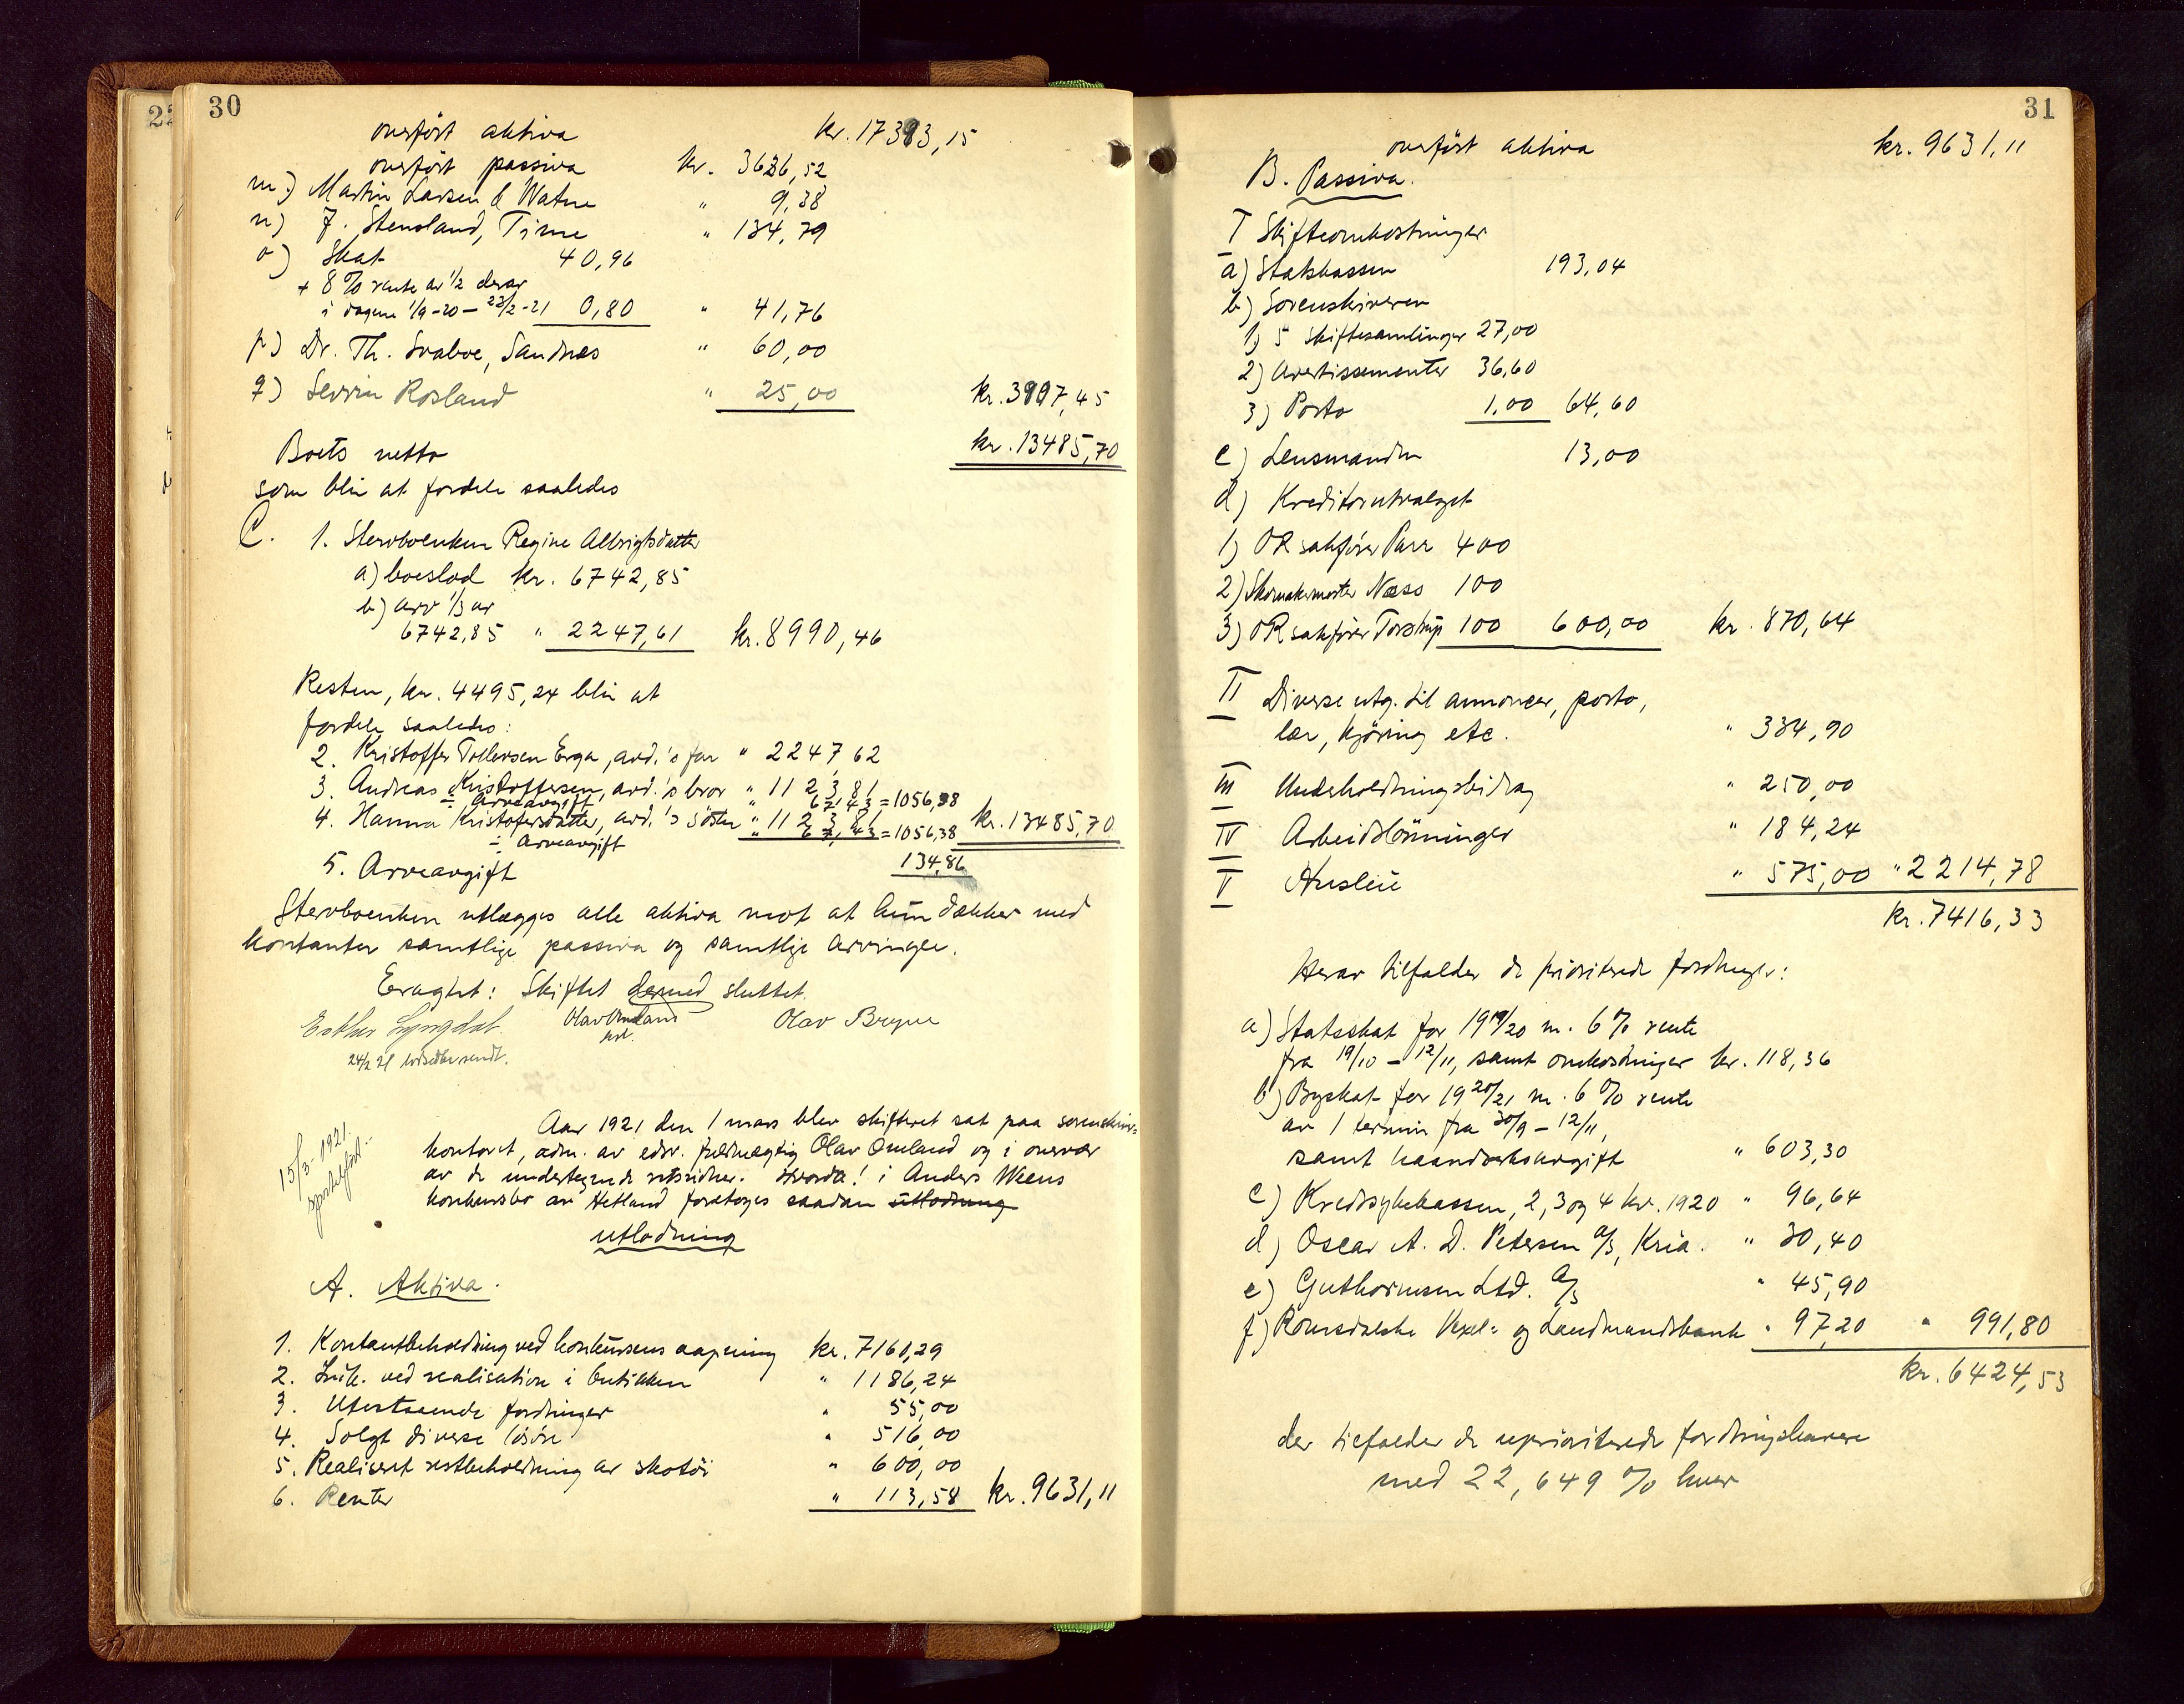 30
overført aktiva kr. 17383,15
overført passiva kr. 3626,52
m) Martin Larsen d Watne " 9,38
n) J. Stensland, Time " 134,79
o) Skat 40,96
+ 8 % rente av 1/2 derav
i dagene 1/9-20 – 23/2-21 0,80 " 41,76
p) Dr. Th. Svaboe, Sandnæs " 60,00
q) Sevrin Rosland " 25,00 kr. 3897,45
Boets netto kr. 13485,70
som blir at fordele saaledes
C. 1. Stervboenken Regine Albrigtsdatter
a) boeslod kr. 6742,85
b) arv 1/3 av
6742,85 " 2247,61 kr. 8990,46
Resten, kr. 4495,24 blir at
fordele saaledes:
2. Kristoffer Tollevsen Erga, avd.'s far " 2247,62
3. Andreas Kristoffersen, avd.'s bror " 1123,81
÷ Arveavgift 67,43 = 1056,38
4. Hanna Kristofersdatter, avd.'s söster " 1123,81 kr. 13485,70
÷ Arveavgift 67,43 = 1056,38
5. Arveavgift 134,86
Stervboenken utlægges alle aktiva mot at hun dækker med
kontanter samtlige passiva og samtlige arvinger.
Eragtet: Skiftet dermed sluttet.
Esther Lyngdal. Olav Omland Olav Bryne
kst.
24/2 21 sendt.
15/3-1921.
Aar 1921 den 1 mars blev skifteret sat paa sorenskriver=
kontoret, adm. av edsv. fuldmægtig Olav Omland og i overvær
av de undertegnede retsvidner. Hvorda! i Anders Weens
konkursbo av Hetland foretages saadan utlodning
utlodning
A. Aktiva.
1. Kontantbeholdning ved konkursens aapning kr. 7160,29
2. Indk. ved realisation i butikken " 1186,24
3. Utestaaende fordringer " 55,00
4. Solgt diverse lösöre " 516,00
5. Realiseret restbeholdning av skotöi " 600,00
6. Renter " 113,58 kr. 9631,11
31
overført aktiva kr. 9631,11
B. Passiva.
I Skifteomkostninger
a) Statskassen 193,04
b) Sorenskriveren
1) 5 skiftesamlinger 27,00
2) Avertissementer 36,60
3) Porto 1,00 64,60
c) Lensmanden 13,00
d) Kreditorutvalget
1) OR sakfører Parr 400
2) Skomakermester Næss 100
3) OR sakfører Torstrup 100 600,00 kr. 870,64
II Diverse utg. til annoncer, porto,
lær, kjöring etc. " 334,90
III Underholdningsbidrag " 250,00
IV Arbeidslönninger " 184,24
V Husleie " 575,00 " 2214,78
kr. 7416,33
Herav tilfalder de prioriterede fordringer:
a) Statsskat for 1919/20 m. 6 % rente
fra 19/10 – 12/11, samt omkostninger kr. 118,36
b) Byskat for 1920/21 m. 6 % rente
av 1 termin fra 30/9 – 12/11,
samt haandverksavgift " 603,30
c) Kredssykekassen, 2, 3 og 4 kv. 1920 " 96,64
d) Oscar A. D. Petersen A/S, Kria. " 30,40
e) Guthormsen Ltd. A/S " 45,90
f) Romsdalske Vexel= og Landmandsbank " 97,20 " 991,80
kr. 6424,53
der tilfalder de uprioriterede fordringshavere
med 22,649 % hver